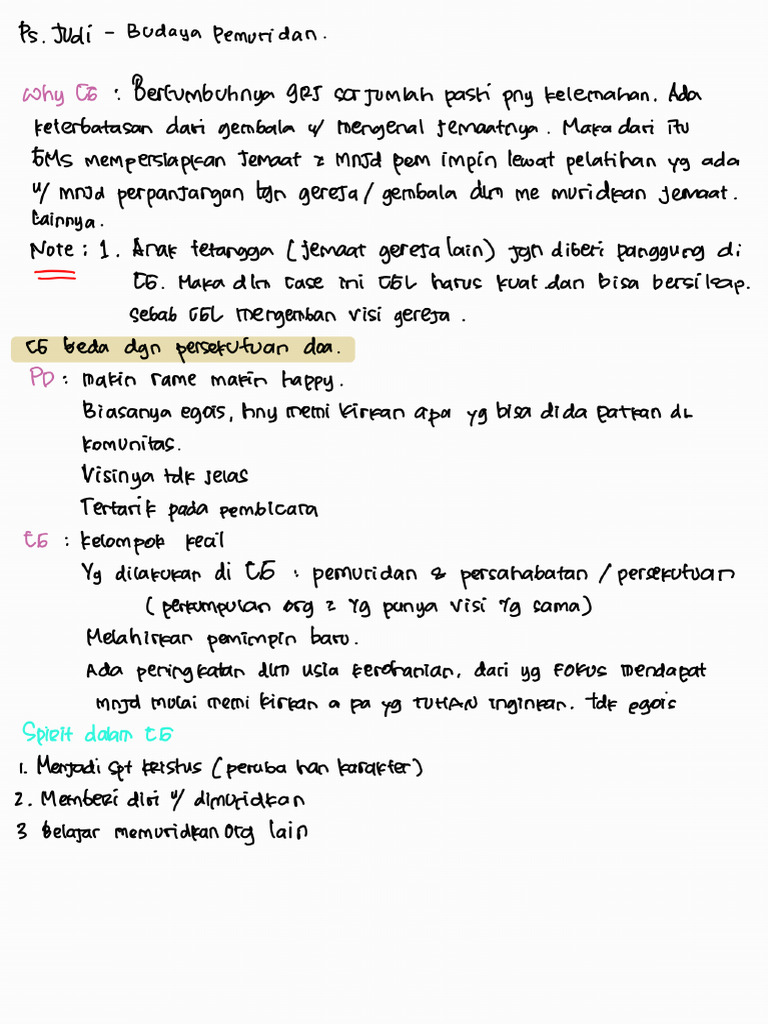 Ps. Judi - Budaya Pemuridan.
Why CG : Bertumbuhnya grj scr jumlah pasti pny kelemahan. Ada
keterbatasan dari gembala u/ mengenal jemaatnya. Maka dari itu
GMS mempersiapkan jemaat2 mnjd pemimpin lewat pelatihan yg ada
u/ mnjd perpanjangan tgn gereja/gembala dlm memuridkan jemaat.
Lainnya.
Note : 1. Anak tetangga (jemaat gereja lain) jgn diberi panggung di
CG. Maka dlm case ini CGL harus kuat dan bisa bersikap.
Sebab CGL mengemban visi gereja.
CG beda dgn persekutuan doa.
PD : makin rame makin happy.
Biasanya egois, hny memikirkan apa yg bisa didapatkan di
komunitas.
Visinya tdk jelas
Tertarik pada pembicara
CG : kelompok kecil
Yg dilakukan di CG : pemuridan & persahabatan / persekutuan
(perkumpulan org2 yg punya visi yg sama)
Melahirkan pemimpin baru.
Ada peningkatan dlm usia kerohanian, dari yg FOKUS mendapat
mnjd mulai memikirkan apa yg TUHAN inginkan. tdk egois
Spirit dalam CG
1. Menjadi spt kristus (perubahan karakter)
2. Memberi diri u/ dimuridkan
3 Belajar memuridkan org lain